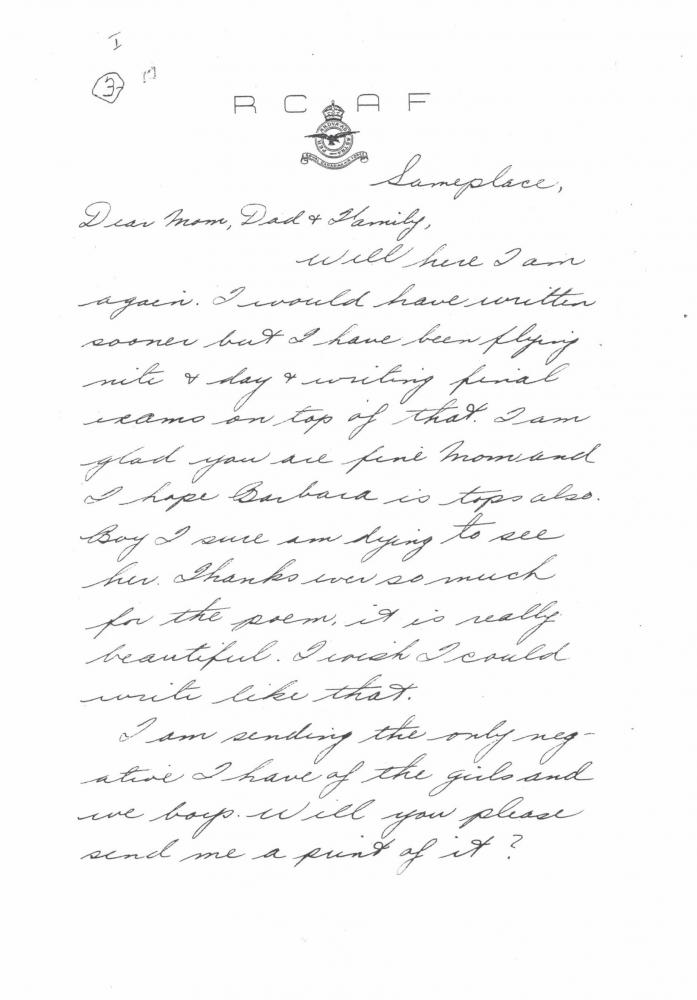 I
3
[?]
R C A F
PER ARDUA AD ASTRA
ROYAL CANADIAN AIR FORCE
Sameplace,
Dear Mom, Dad & Family,
Well here I am
again. I would have written
sooner but I have been flying
nite & day & writing final
exams on top of that. I am
glad you are fine Mom and
I hope Barbara is tops also.
Boy I sure am dying to see
her. Thanks ever so much
for the poem, it is really
beautiful. I wish I could
write like that.
I am sending the only neg-
ative I have of the girls and
we boys. Will you please
send me a print of it?